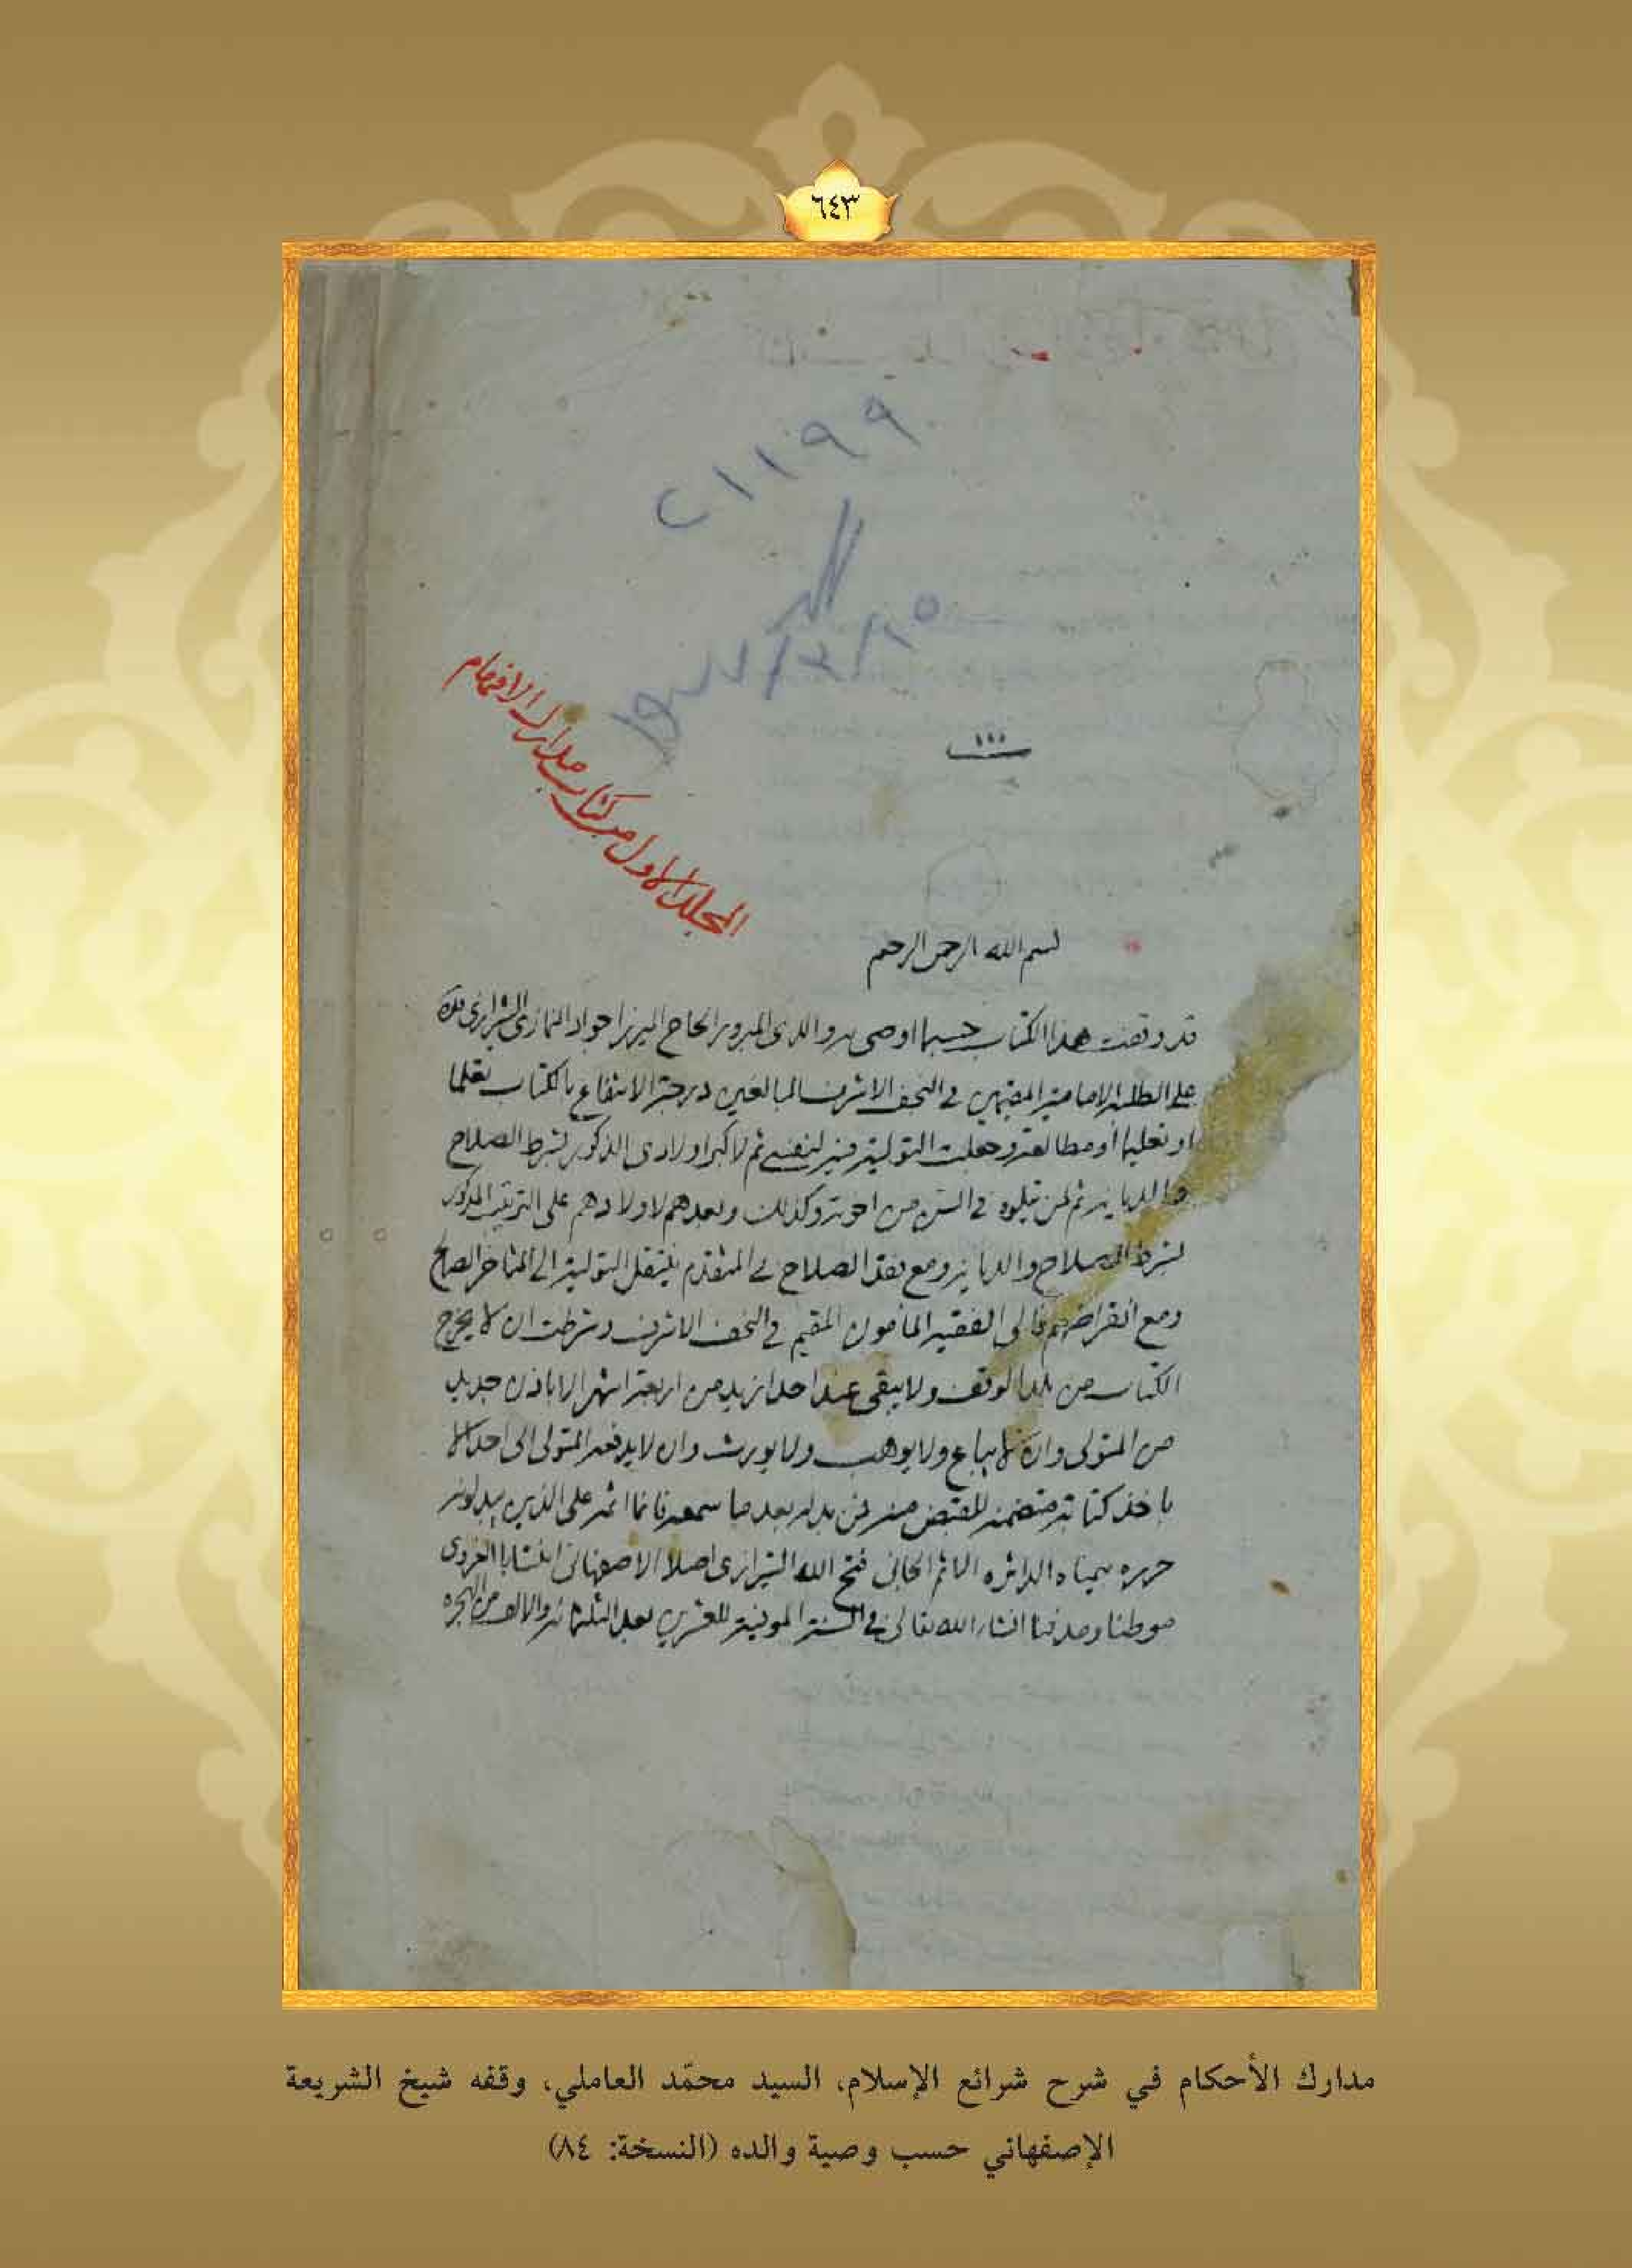 ٦٤٣
٢١١٩٩
المجلد الاول من كتاب مدارك الافهام
بسم الله الرحمن الرحيم
قد وقفت هذا الكتاب حسبما اوصى به والدى المبرور الحاج الميرزا جواد النمازى الشيرازى قده
على الطلبة الامامية المقيمين في النجف الاشرف البالغين درجة الانتفاع بالكتاب تعلما
او تعليما أو مطالعة وجعلت التولية فيه لنفسي ثم لاكبر اولادى الذكور بشرط الصلاح
والديانة ثم لمن يتلوه في السن من اخوته وكذلك وبعدهم لاولادهم على الترتيب المذكور
بشرط الصلاح والديانة ومع فقد الصلاح في المتقدم ينتقل التولية الى المتاخر الصالح
ومع انقراضهم فالى الفقيه المأمون المقيم في النجف الاشرف وشرطت ان لا يخرج
الكتاب من بلد الوقف ولا يبقى عند احد ازيد من اربعة اشهر الا باذن جديد
من المتولى وان لا يباع ولا يوهب ولا يورث وان لا يدفعه المتولى الى احد الا
باخذ كتابة متضمنة للقبض منه فمن بدله بعد ما سمعه فانما اثمه على الذين يبدلونه
حرره بيمناه الداثره الاثم الجانى فتح الله الشيرازى اصلا الاصفهانى انتسابا الغروى
موطنا ومدفنا انشاء الله تعالى في السنة الموفية للعشرين بعد الثلثمائه والالف من الهجره
مدارك الأحكام في شرح شرائع الإسلام، السيد محمّد العاملي، وقفه شيخ الشريعة
الإصفهاني حسب وصية والده (النسخة: ٨٤)